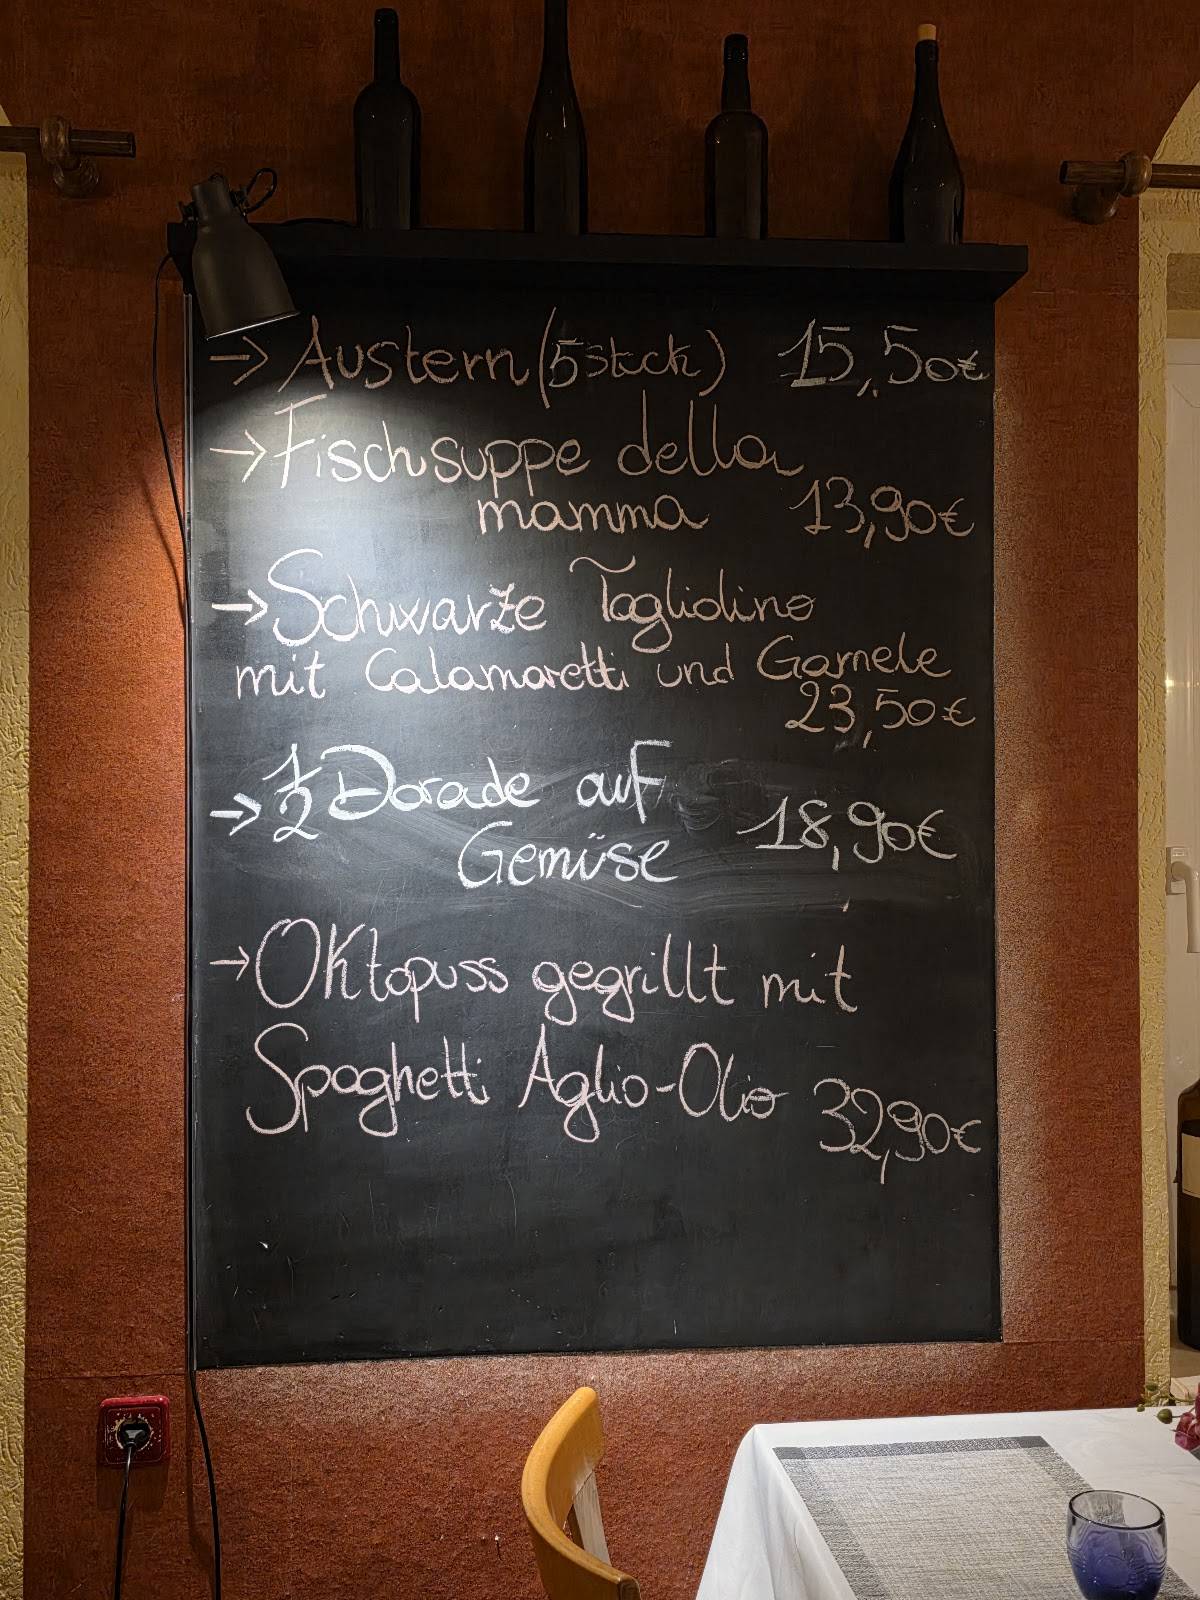 → Austern (5 Stck) 15,50€
→ Fischsuppe della
mamma 13,90€
→ Schwarze Tagliolino
mit Calamaretti und Garnele
23,50€
→ 1/2 Dorade auf
Gemüse 18,90€
→ Oktopuss gegrillt mit
Spaghetti Aglio-Olio 32,90€